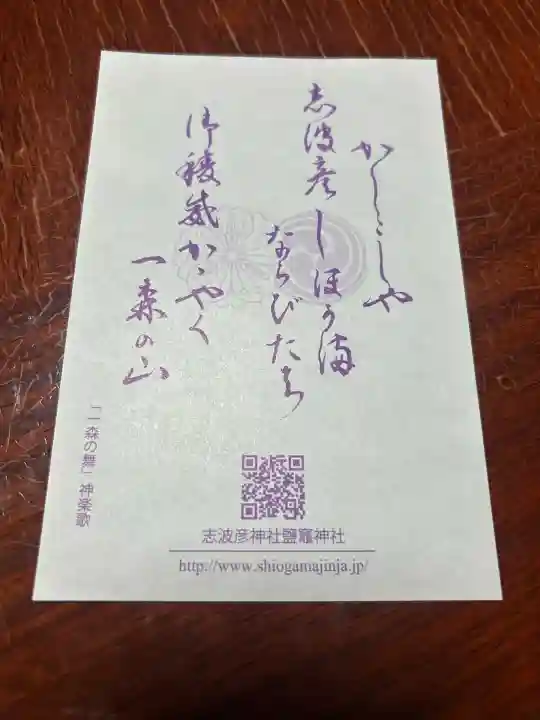 かしこしや
志波彦しほがま
ならびたち
御稜威かゞやく
一森の山
「一森の舞」神楽歌
志波彦神社鹽竈神社
http://www.shiogamajinja.jp/